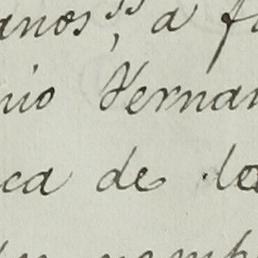 anos", a f
nio Hernan
ca de la